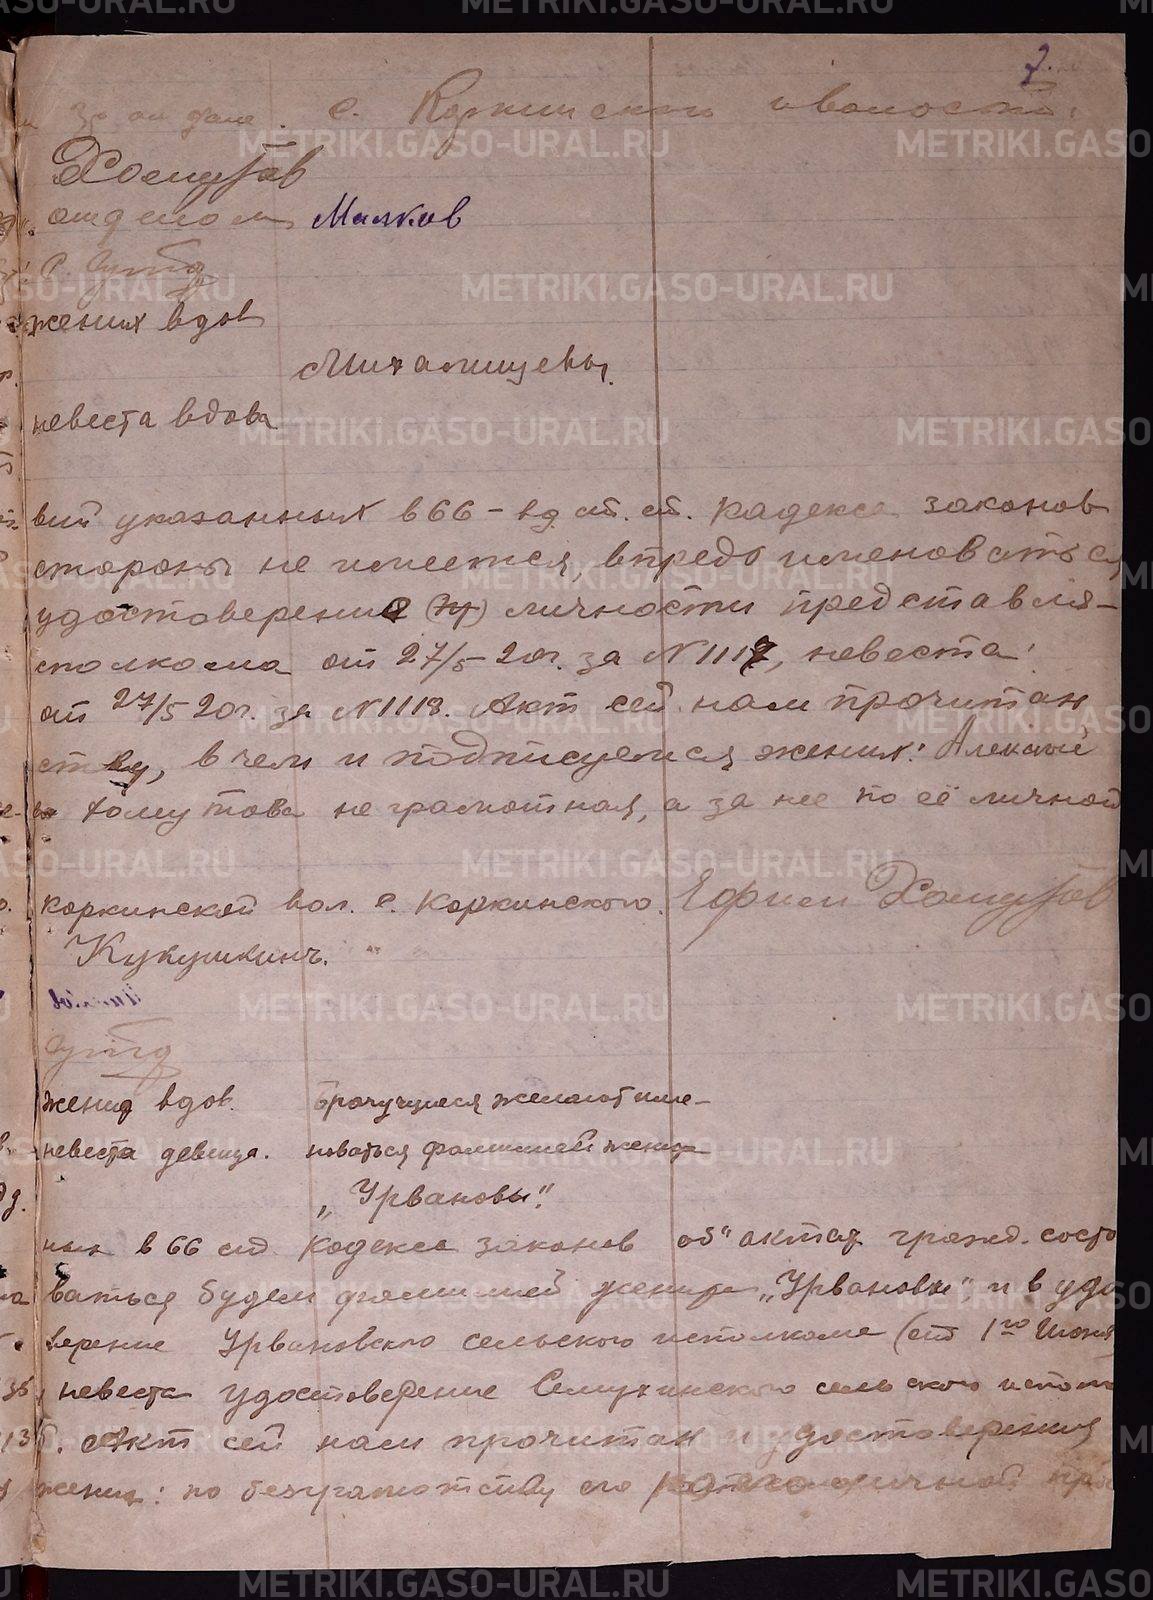 7.
с. Коркинского и волости:
Хомутов
отделом Малков
жених вдов
Михалищевы.
невеста вдова
вий указанных в 66-вд ст. ст. кадекса законов
стороны не имеется, впредь именоваться
удостоверения личности представля-
сполкома от 27/5-20г. за N 1117, невеста:
от 27/5 20г. за N 1118. Акт сей нам прочитан
ству, в чем и подписуемся жених: Алексей
Хомутова не грамотная, а за нее по её личной
Коркинской вол. с. Коркинского. Ефим Хомутов
Кукушкинъ.
жених вдов. брачущиеся желают име-
невеста девица. новаться фамилией жениха
„Урвановы".
ных в 66 ст. Кодекса законов об" актах гражд. состо
ваться будем фамилией жениха „Урвановы" и в удо
верение Урвановского сельского исполкома (от 1го Июня
невеста удостоверение Семухинского сельского исполк
Акт сей нам прочитан и удостоверения
жених: по безграмотству его личной